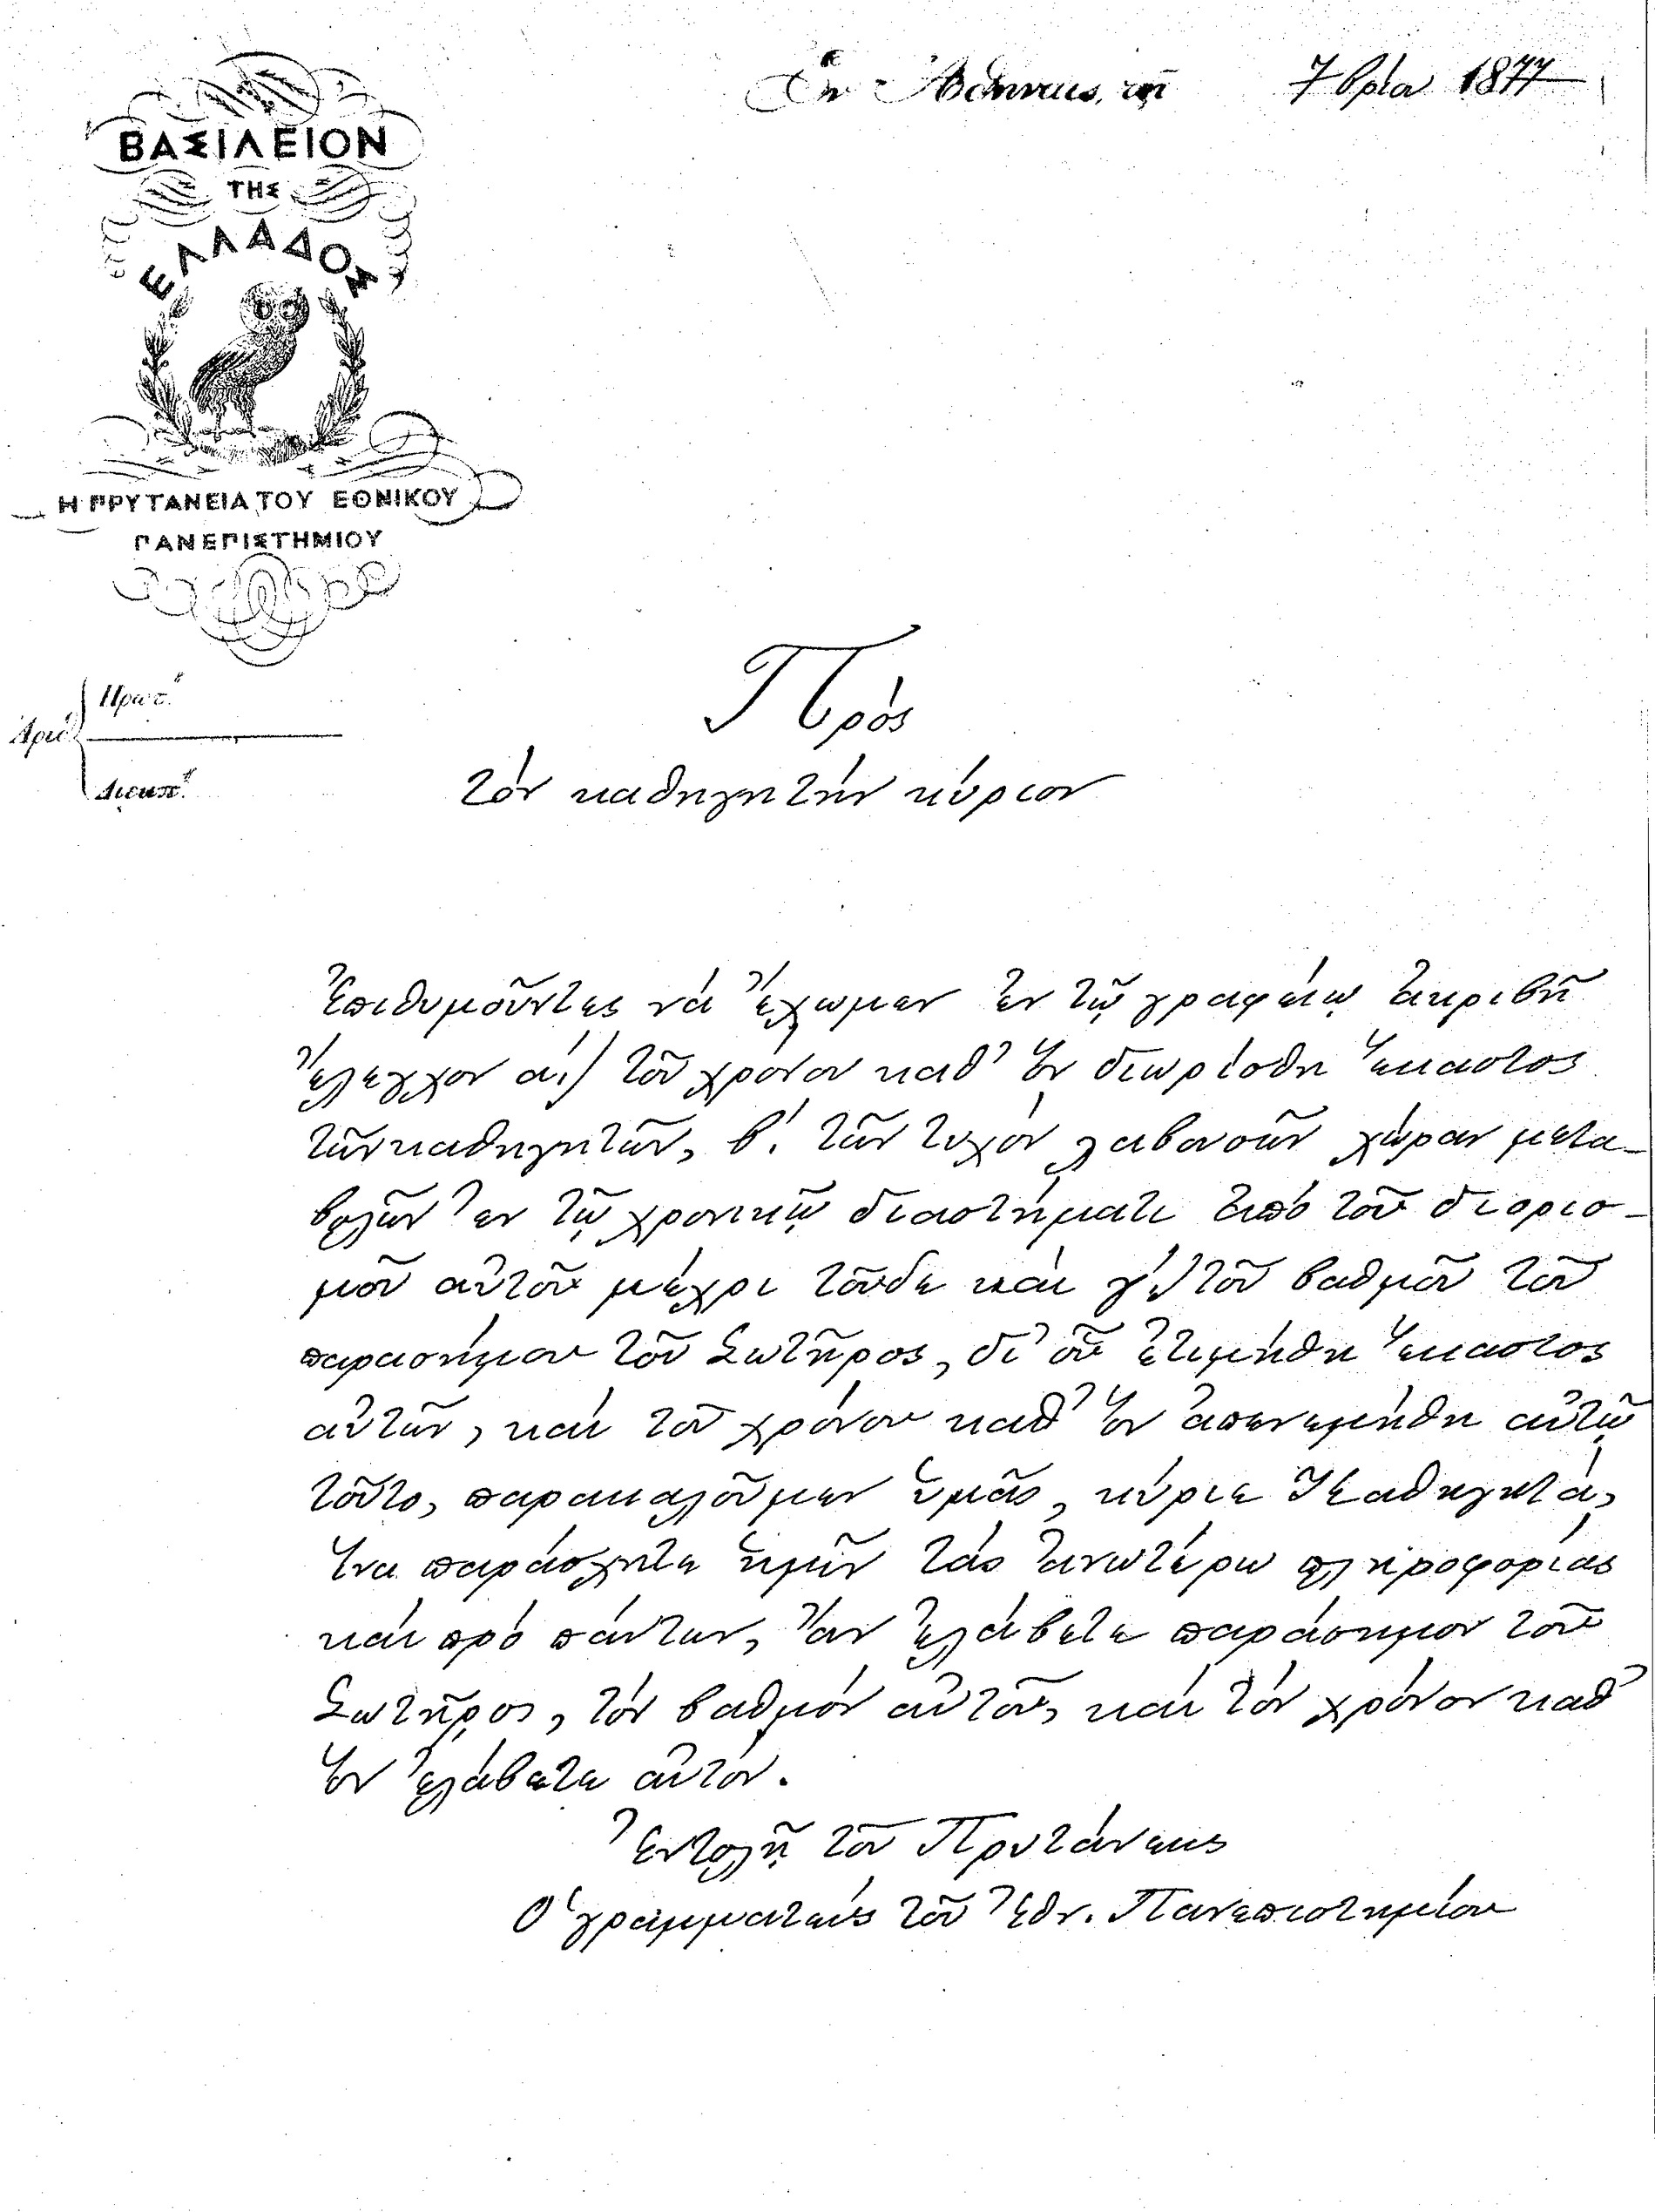 Ἐν Ἀθήναις, τῇ 7βρίου 1877
ΒΑΣΙΛΕΙΟΝ
ΤΗΣ
ΕΛΛΑΔΟΣ
Η ΠΡΥΤΑΝΕΙΑ ΤΟΥ ΕΘΝΙΚΟΥ
ΠΑΝΕΠΙΣΤΗΜΙΟΥ
Πρωτ.
Ἀριθ.
Διεκπ.
Πρὸς
τὸν καθηγητὴν κύριον
Ἐπιθυμοῦντες νὰ ἔχωμεν ἐν τῷ γραφείῳ ἀκριβῆ
ἔλεγχον α΄.) τοῦ χρόνου καθ' ὃν διωρίσθη ἕκαστος
τῶν καθηγητῶν, β΄. τῶν τυχὸν λαβουσῶν χώραν μετα-
βολῶν ἐν τῷ χρονικῷ διαστήματι ἀπὸ τοῦ διορισ-
μοῦ αὐτοῦ μέχρι τοῦδε καὶ γ΄.) τοῦ βαθμοῦ τοῦ
παρασήμου τοῦ Σωτῆρος, δι' οὗ ἐτιμήθη ἕκαστος
αὐτῶν, καὶ τοῦ χρόνου καθ' ὃν ἀπενεμήθη αὐτῷ
τοῦτο, παρακαλοῦμεν ὑμᾶς, κύριε Καθηγητά,
ἵνα παράσχητε ἡμῖν τὰς ἀνωτέρω πληροφορίας
καὶ πρὸ πάντων, ἂν ἐλάβετε παράσημον τοῦ
Σωτῆρος, τὸν βαθμὸν αὐτοῦ, καὶ τὸν χρόνον καθ'
ὃν ἐλάβετε αὐτόν.
Ἐντολῇ τοῦ Πρυτάνεως
Ὁ γραμματεὺς τοῦ Ἐθν. Πανεπιστημίου